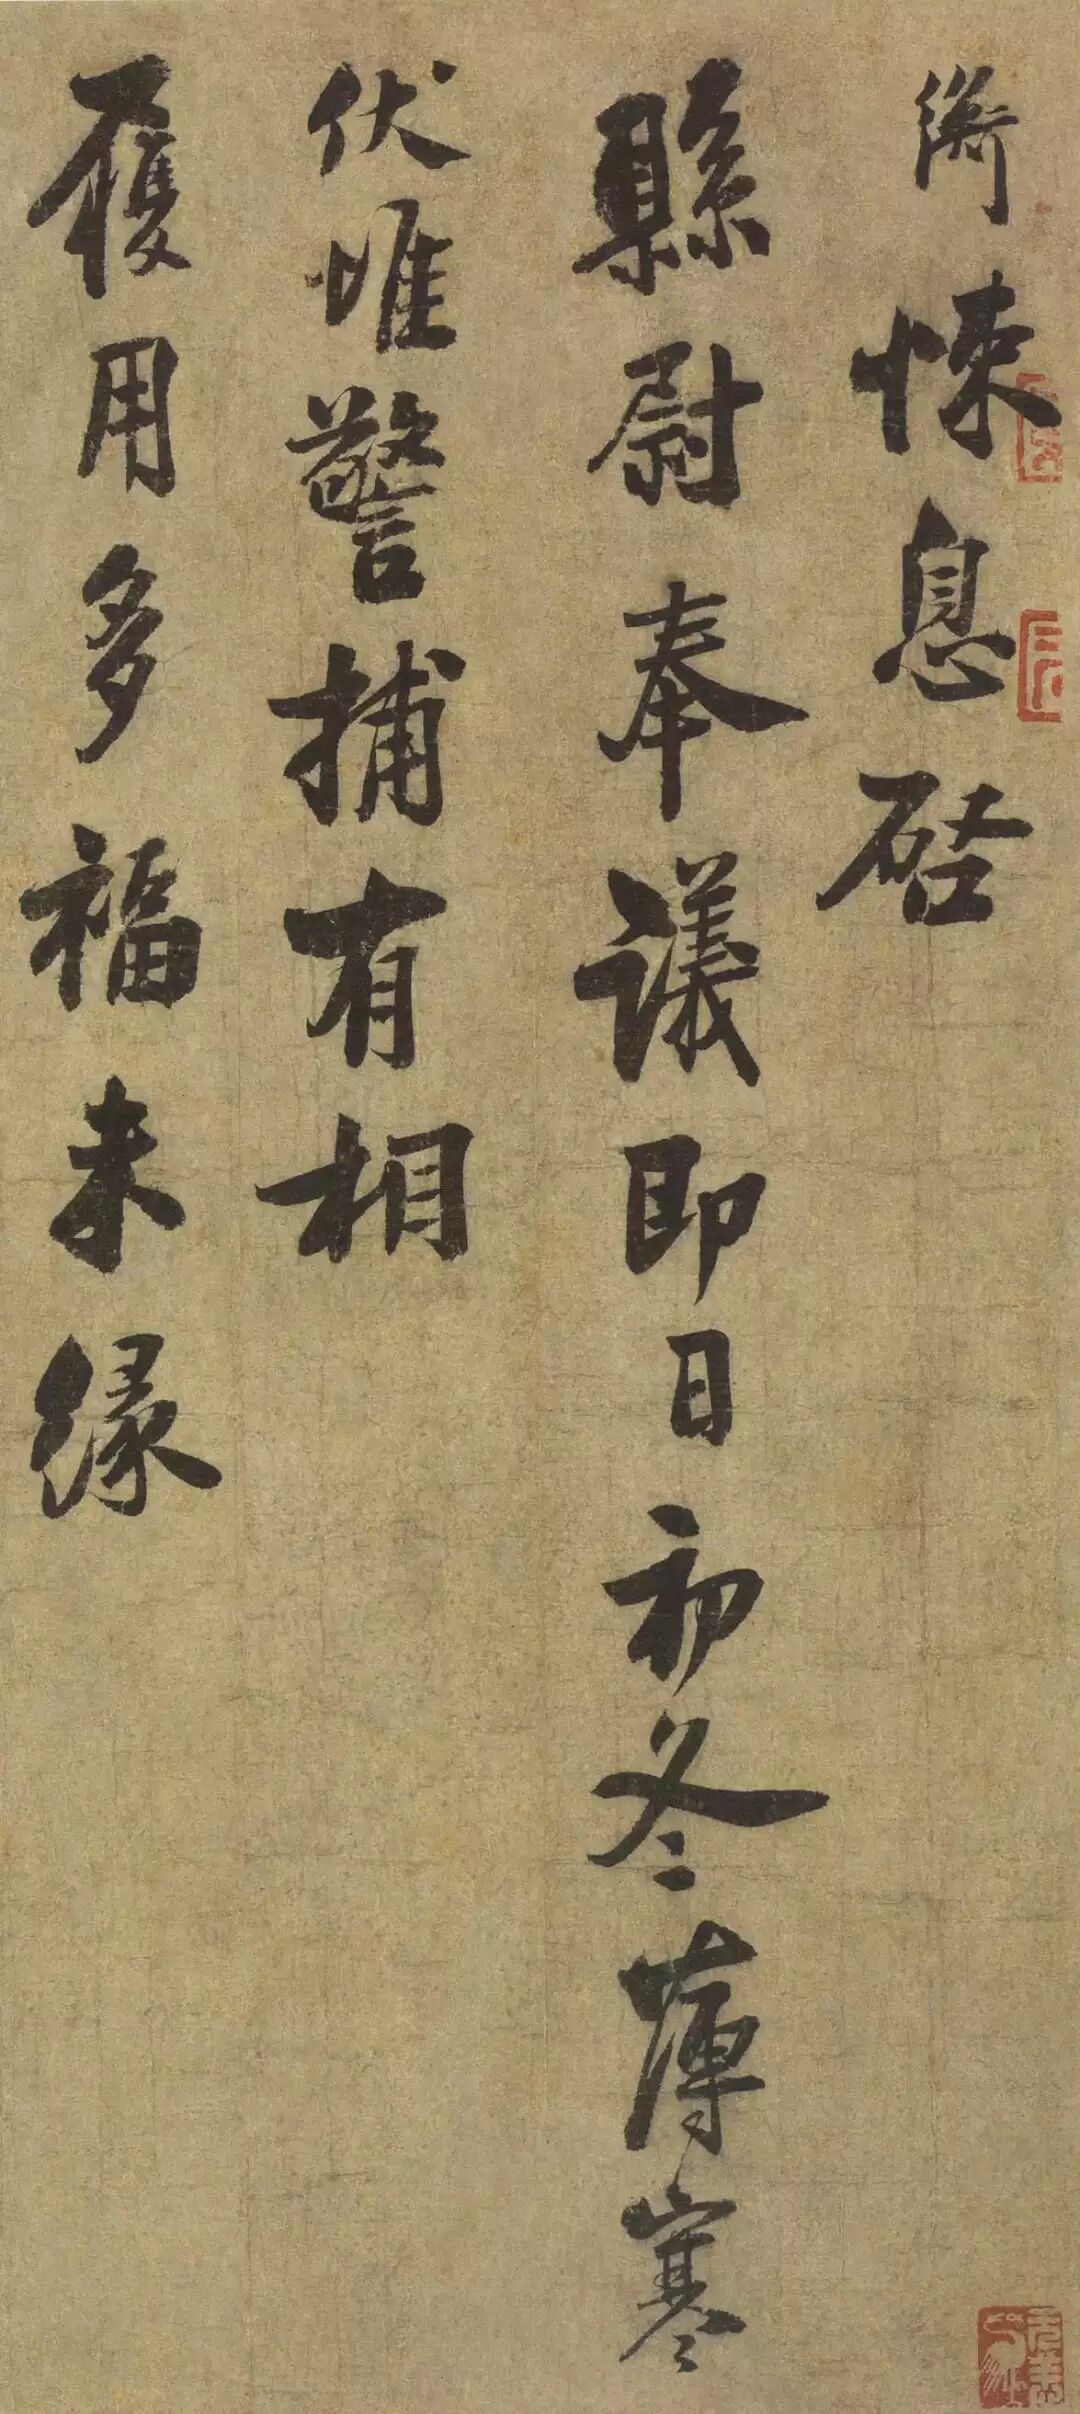 衡悚息啓
縣尉奉議即日初冬薄寒
伏惟警捕有相
履用多福未緣